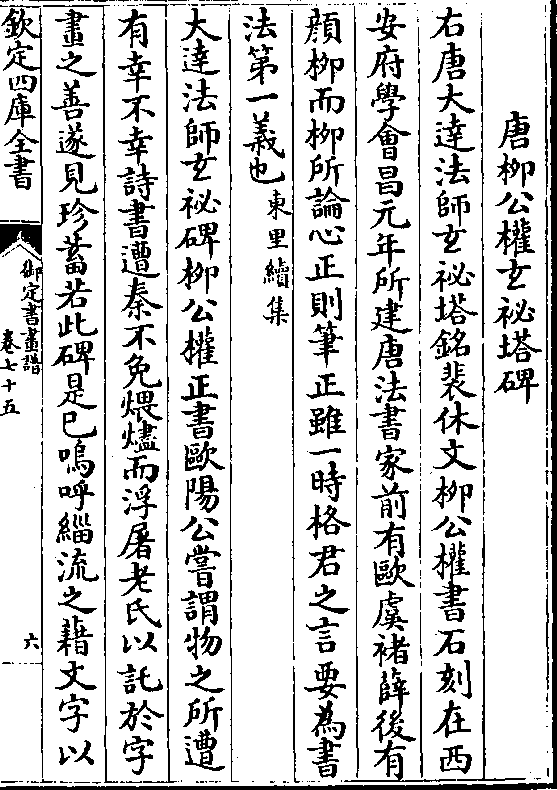 唐柳公權玄祕塔碑
右唐大達法師玄祕塔銘裴休文柳公權書石刻在西
安府學會昌元年所建唐法書家前有歐虞褚薛後有
顔柳而柳所論心正則筆正雖一時格君之言要為書
法第一義也東里續集
大達法師玄祕碑柳公權正書歐陽公嘗謂物之所遭
有幸不幸詩書遭秦不免煨燼而浮屠老氏以託於字
畫之善遂見珍蓄若此碑是已嗚呼緇流之藉文字以
欽定四庫全書
御定書畫譜
卷七十五
六